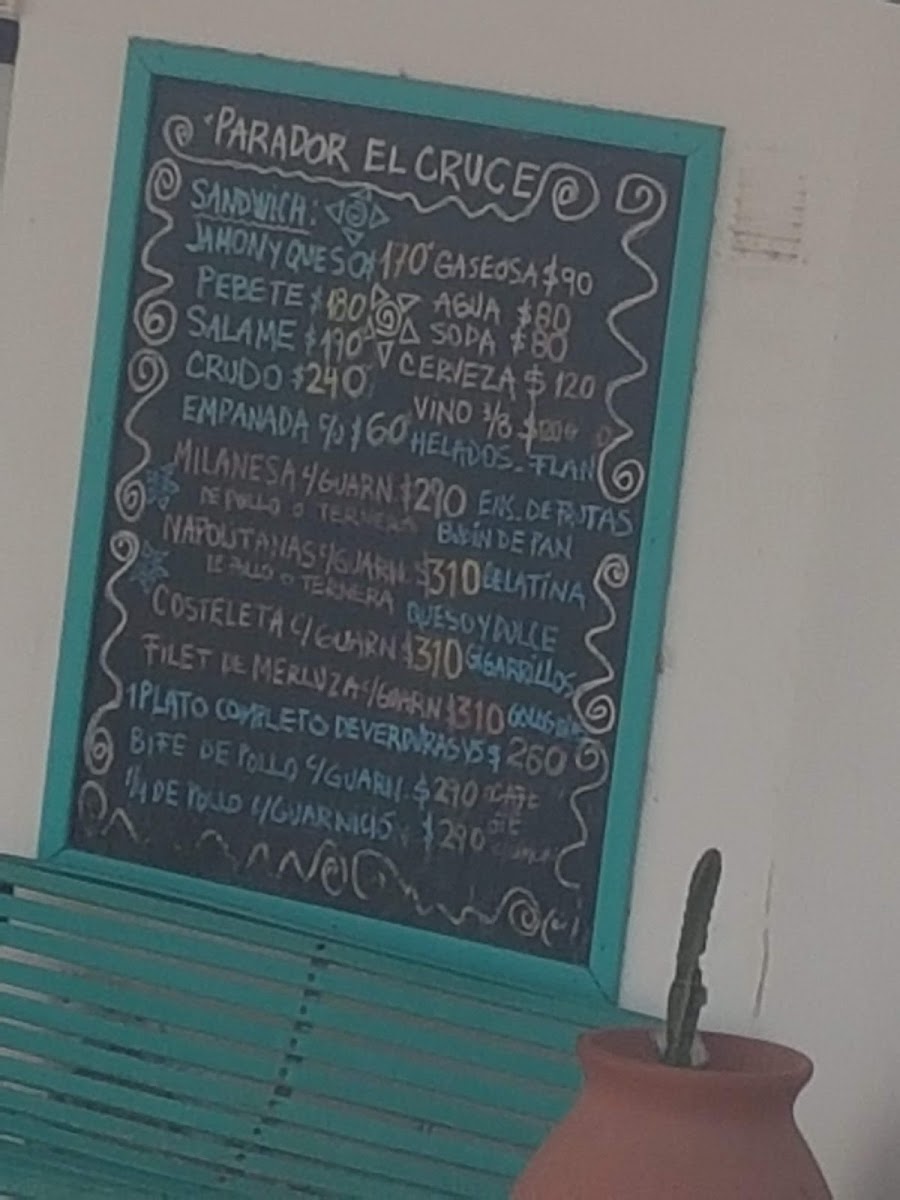 PARADOR EL CRUCE
SANDWICH:
JAMON Y QUESO $170 GASEOSA $90
PEBETE $180 AGUA $80
SALAME $190 SODA $80
CRUDO $240 CERVEZA $120
VINO 3/8
EMPANADA c/u $60 HELADOS - FLAN
MILANESA c/GUARN. $290 ENS. DE FRUTAS
DE POLLO O TERNERA BUDIN DE PAN
NAPOLITANAS c/GUARN. $310 GELATINA
DE POLLO O TERNERA QUESO Y DULCE
COSTELETA c/GUARN $310 CIGARRILLOS
FILET DE MERLUZA c/GUARN $310
1 PLATO COMPLETO DE VERDURAS $260
BIFE DE POLLO c/GUARN. $290 CAFE
1/4 DE POLLO c/GUARNICIÓ $290